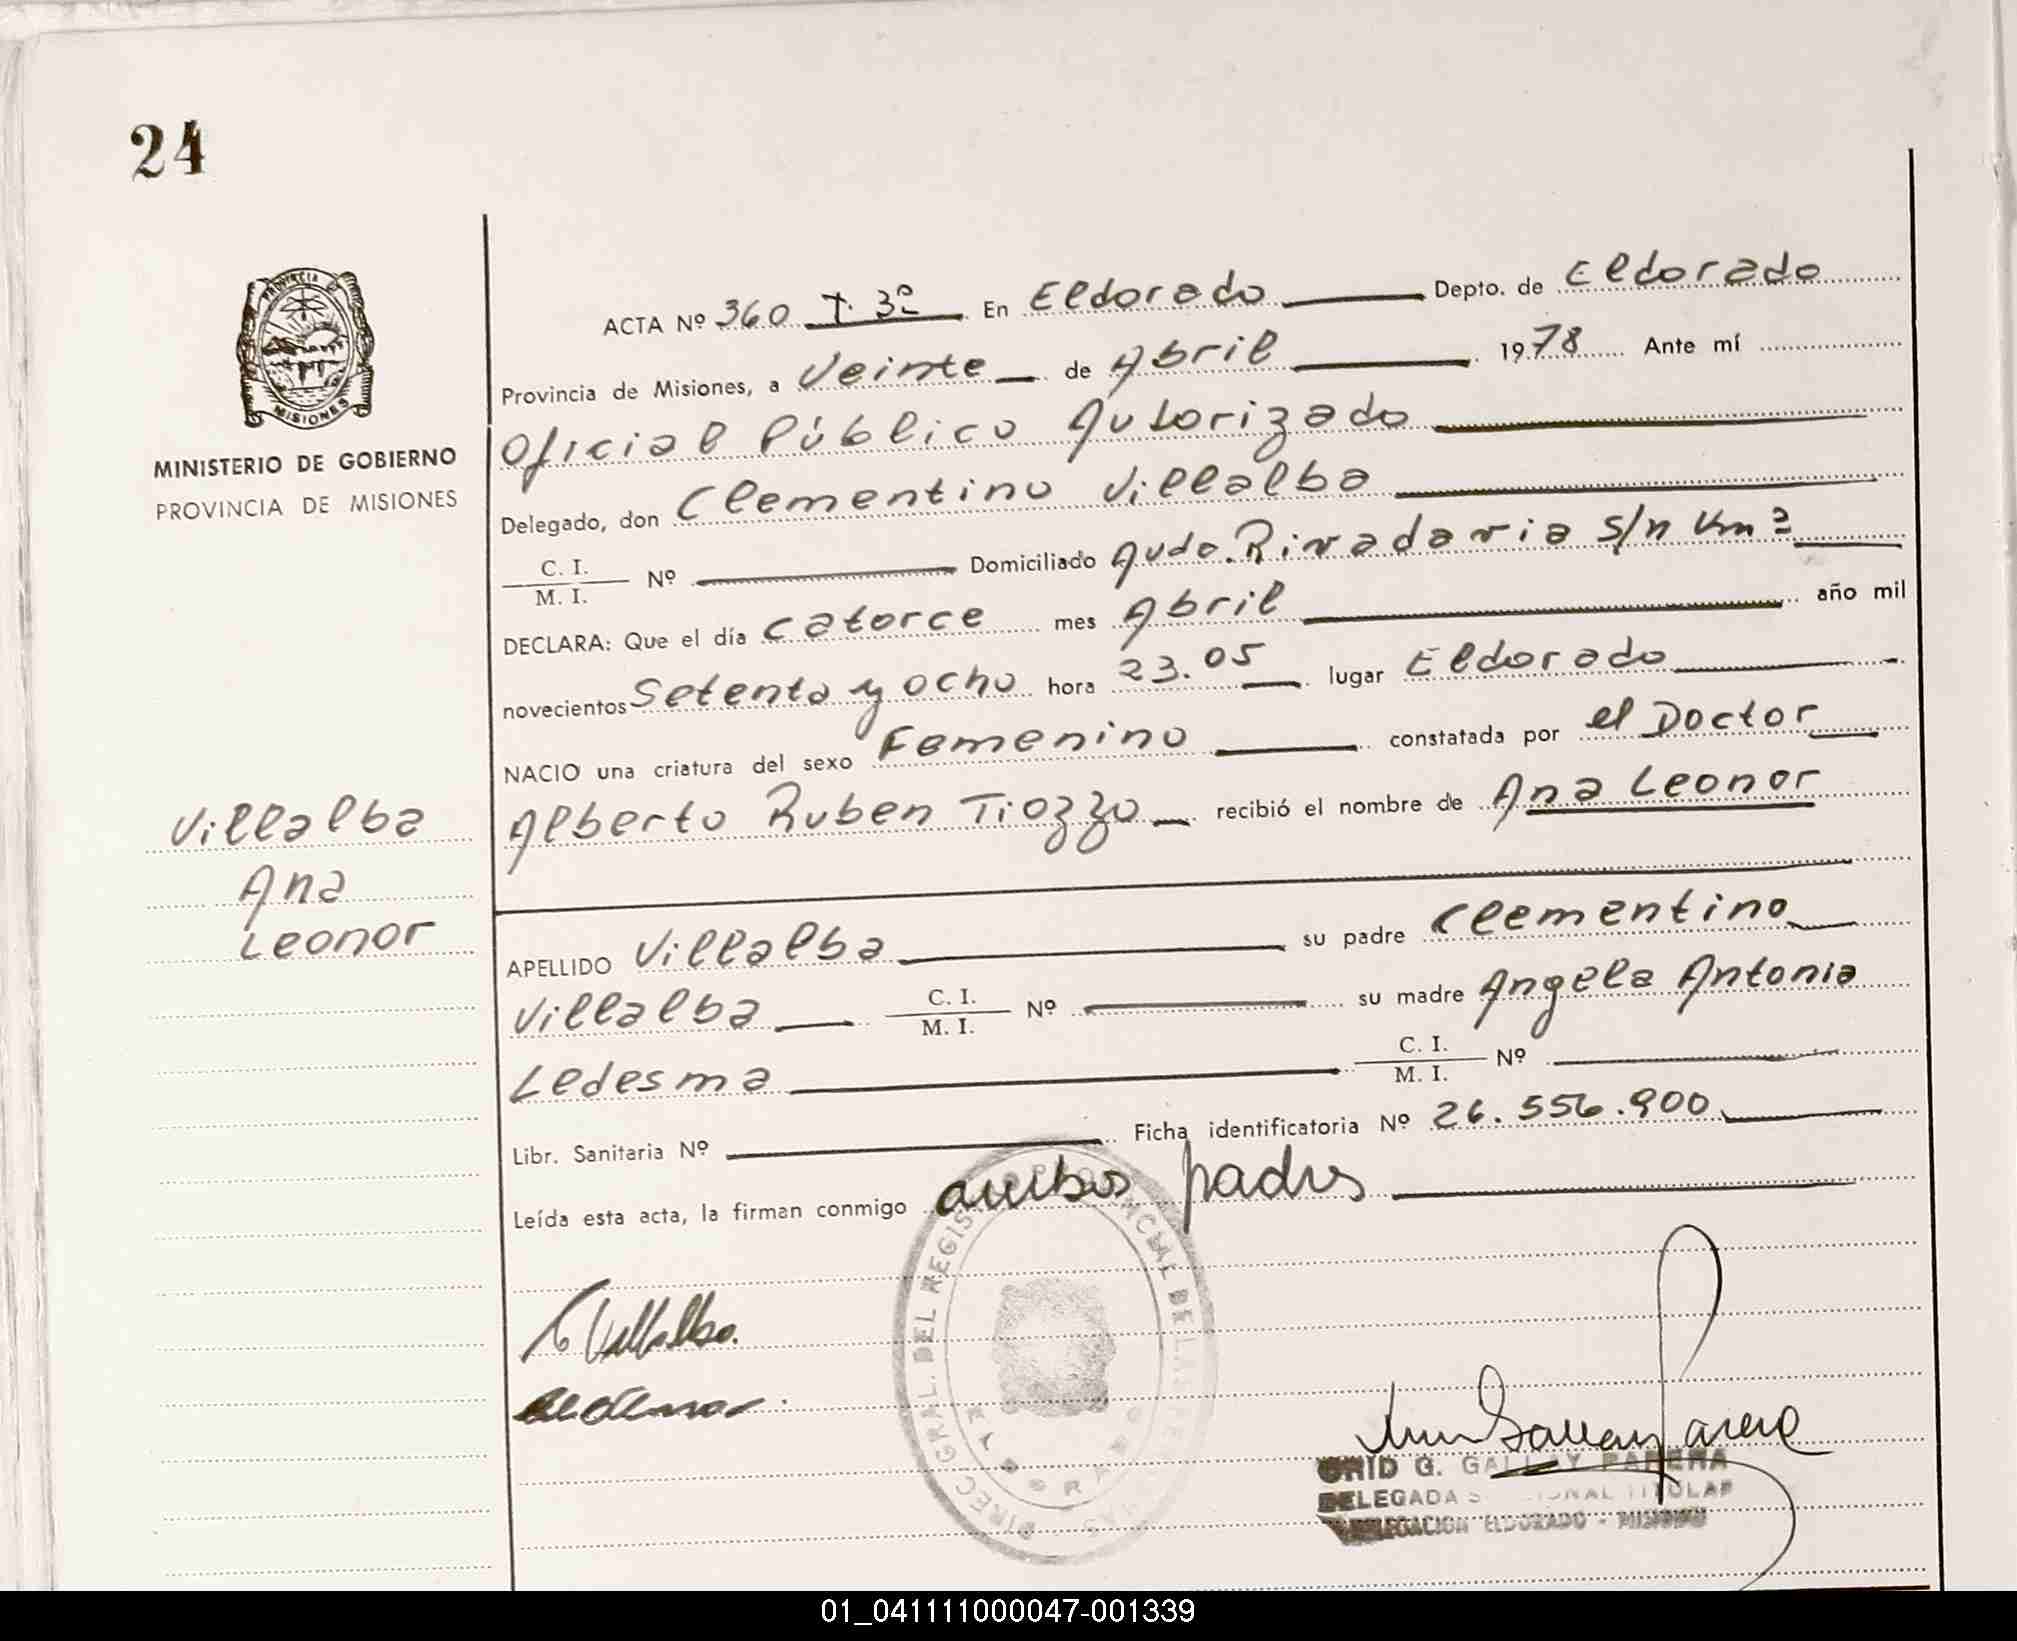 24
PROVINCIA DE
MISIONES
MINISTERIO DE GOBIERNO
PROVINCIA DE MISIONES
Villalba
Ana
Leonor
ACTA Nº 360 T. 3º En Eldorado Depto. de Eldorado
Provincia de Misiones, a Veinte de Abril 1978 Ante mí
Oficial Público Autorizado
Delegado, don Clementino Villalba
C. I.
M. I. Nº Domiciliado Avda. Rivadavia S/n Km 2
DECLARA: Que el día Catorce mes Abril año mil
novecientos Setenta y ocho hora 23.05 lugar Eldorado
NACIO una criatura del sexo Femenino constatada por el Doctor
Alberto Ruben Tiozzo recibió el nombre de Ana Leonor
APELLIDO Villalba su padre Clementino
Villalba C. I. M. I. Nº su madre Angela Antonia
Ledesma C. I. M. I. Nº
Libr. Sanitaria Nº Ficha identificatoria Nº 26.556.900
Leída esta acta, la firman conmigo ambos padres
DIREC. GRAL. DEL REGISTRO PROVINCIAL DE LAS PERSONAS
ELDORADO
C Villalba.
G. GALLAY PARERA
DELEGADA TITULAR
DELEGACION ELDORADO - MISIONES
01_041111000047-001339